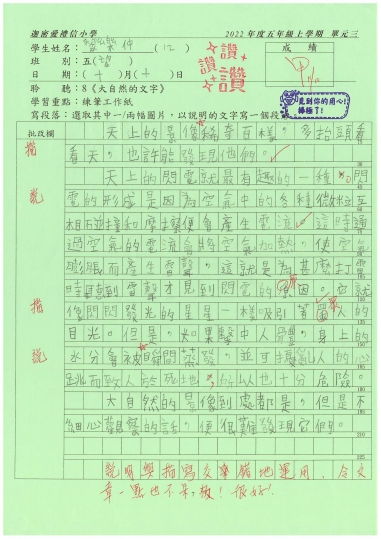 迦密愛禮信小學
2022年度五年級上學期 單元三
學生姓名：
(12)
成績
班 別：五(望)
甲
讚
讚
讚
日 期：(十)月(十)日
聆 聽：8《大自然的文字》
學習重點：練筆工作紙
見到你的用心！
棒極了！
寫段落：選取其中一/兩幅圖片，以說明的文字寫一個段
批改欄
天上的景像稀奇百樣，多抬頭看
看天，也許能發現他們。
描
天上的閃電就最有趣的一種，閃
說
電的形成是因為空氣中的各種微粒互
相碰撞和摩擦便會產生電流。這時通
過空氣的電流會將空氣加熱，使空氣
膨脹而產生雷聲，這就是為甚麼打雷
時聽到雷聲才見到閃電的原因。它就
描
像閃閃發光的星星一樣吸引著
目光。但是，如果擊中人體，身上的
說
水分會被瞬間蒸發，並可擾亂人的心
跳而致人於死地，所以也十分危險。
大自然的景像到處都是，但是不
細心觀察的話，便很難發現它們。
說明與描寫交替錯地運用，令文
章一點也不呆板！很好！